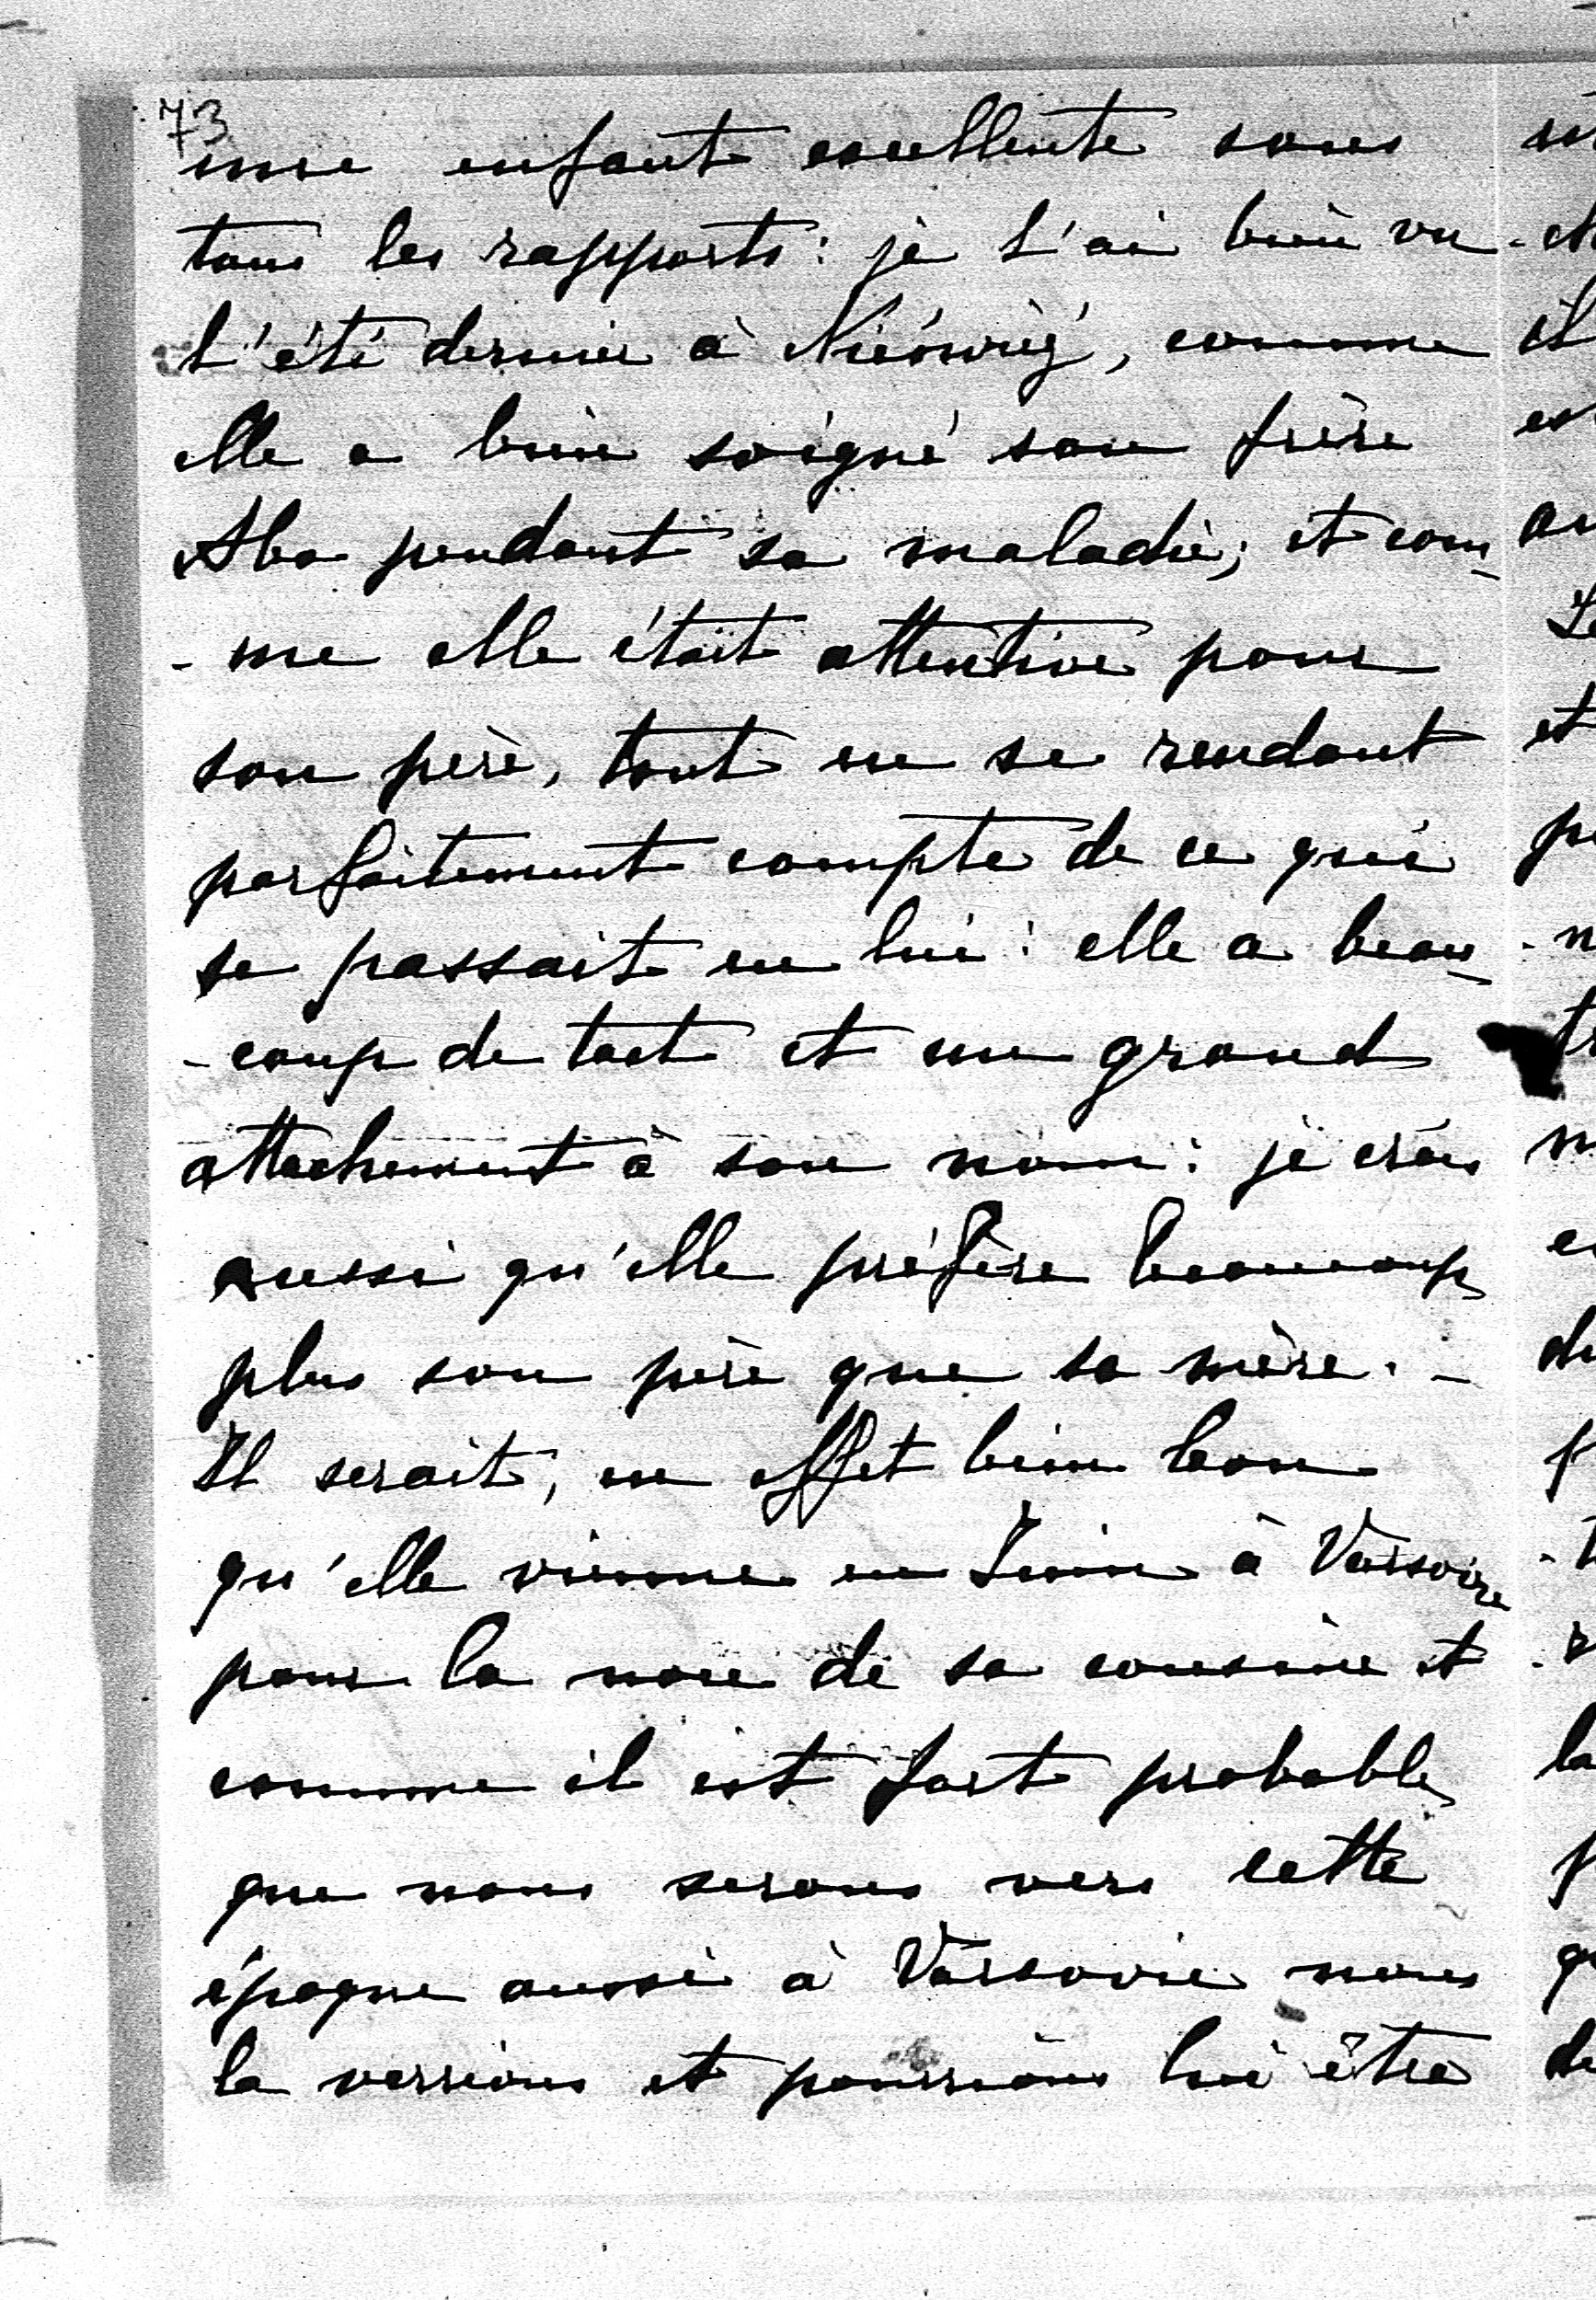 73
une enfant excellente sous
tous les rapports: je l'ai bien vu
l'été dernier à Niéswiéj, comme
elle a bien soigné son frère
Aba pendant sa maladie; et com-
- me elle était attentive pour
son père, tout en se rendant
parfaitement compte de ce qui
se passait en lui: elle a beau-
- coup de tact et un grand
attachement à son nom: je crois
aussi qu'elle préfère beaucoup
plus son père que sa mère. -
Il serait, en effet bien bon
qu'elle vienne en Juin à Varsovie
pour la noce de sa cousine et
comme il est fort probable
que nous serons vers cette
époque aussi à Varsovie nous
la verrions et pourrions lui être